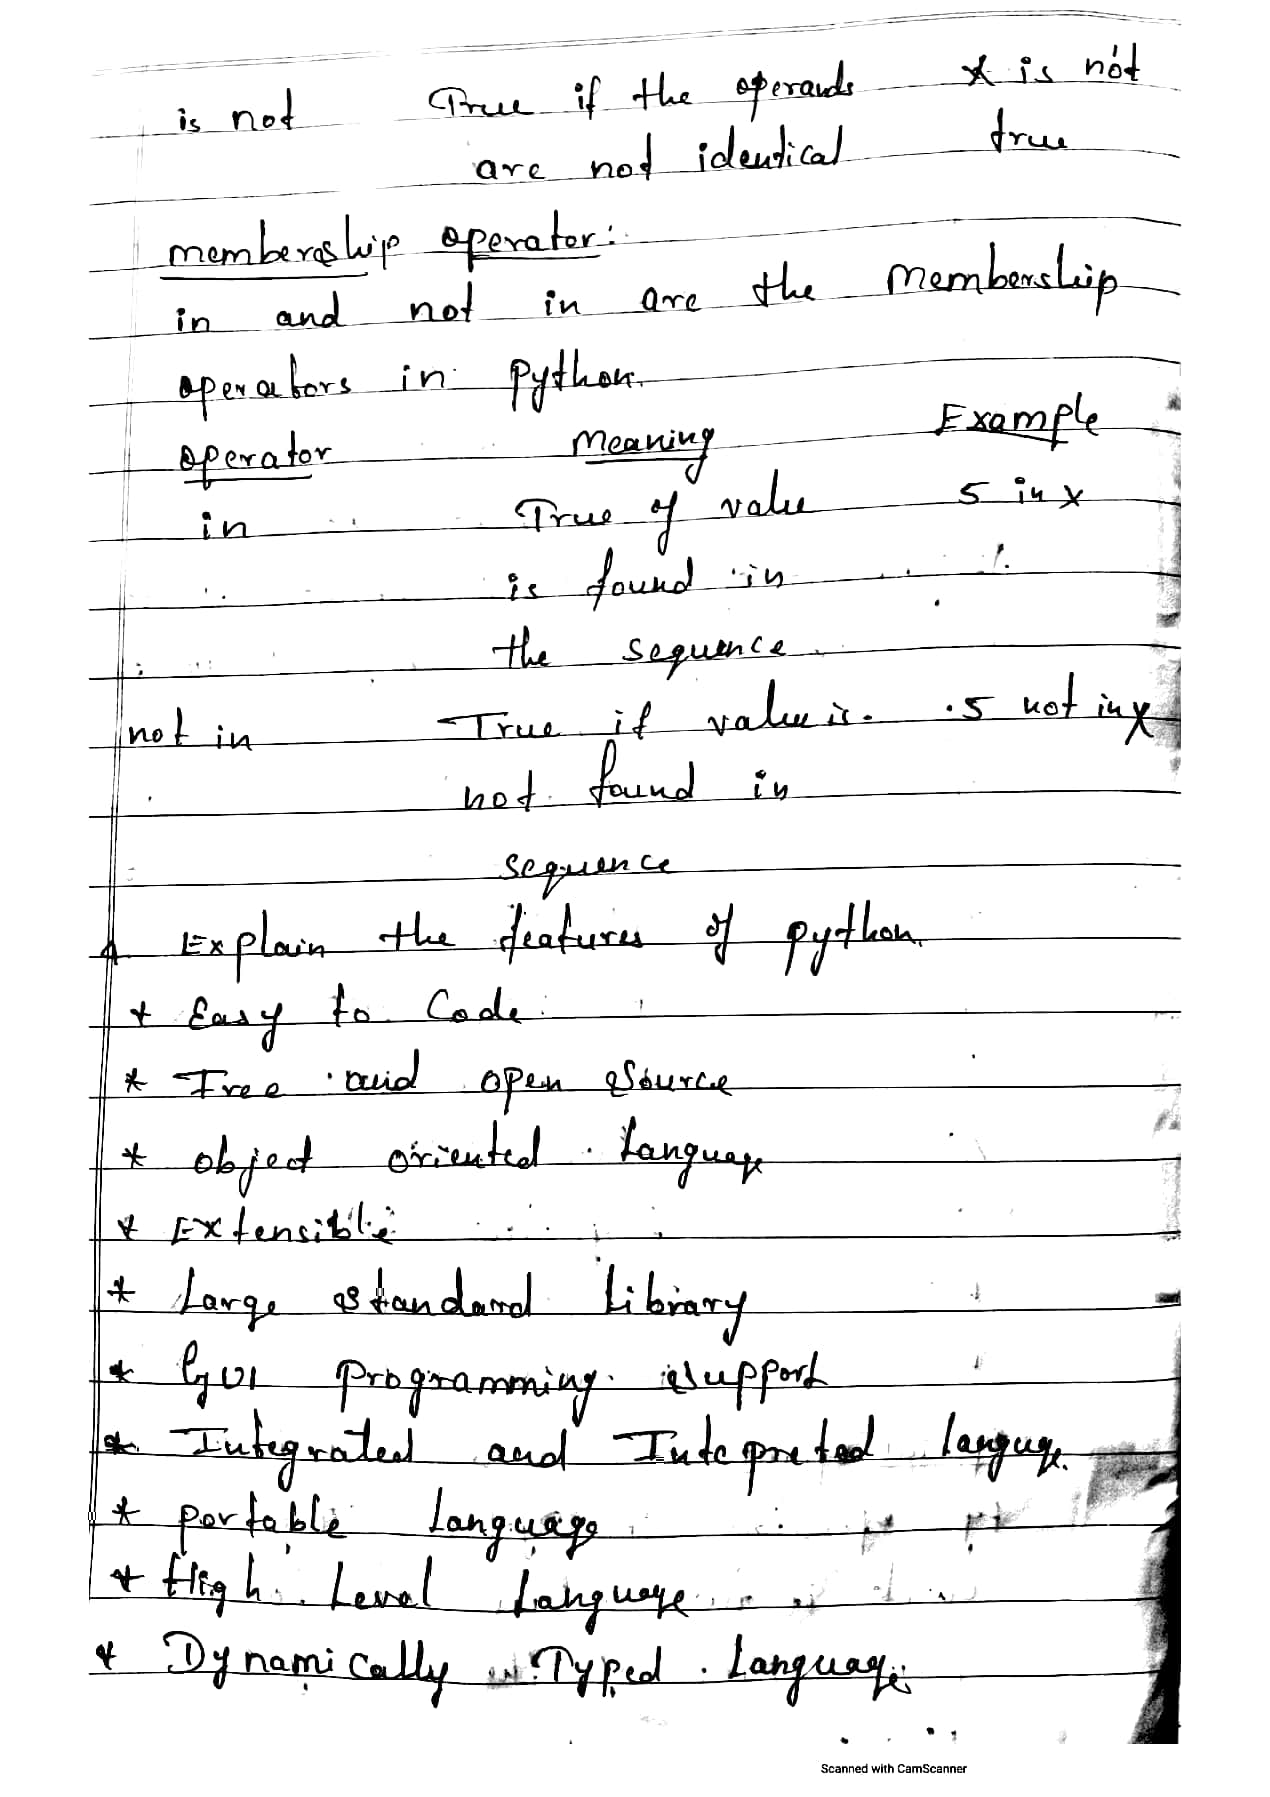 is not True if the operands x is not
are not identical true
membership operator:
in and not in are the membership
operators in python.
operator Meaning Example
in True of value 5 in x
is found in
the sequence
not in True if value is 5 not in x
not found in
sequence
Explain the features of python.
* Easy to Code
* Free and open source
* object oriented Language
* Extensible
* Large standard Library
* GUI programming support
* Integrated and Intepreted languge.
* portable Language
* High Level Language
* Dynamically Typed Language
Scanned with CamScanner